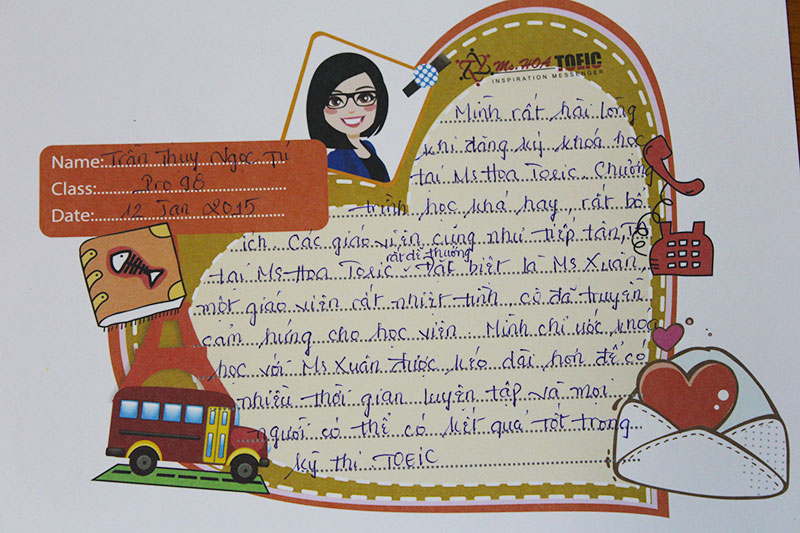 Ms. HOA TOEIC
INSPIRATION MESSENGER
Name: Trần Thuỵ Ngọc Tú
Class: Pro 98
Date: 12 Jan 2015
Mình rất hài lòng
khi đăng ký khoá học
tại Ms Hoa Toeic. Chương
trình học khá hay, rất bổ
ích. Các giáo viên cũng như tiếp tân,
rất dễ thương
tại Ms Hoa Toeic. Đặc biệt là Ms Xuân,
một giáo viên rất nhiệt tình, cô đã truyền
cảm hứng cho học viên. Mình chỉ ước khoá
học với Ms Xuân được kéo dài hơn để có
nhiều thời gian luyện tập và mọi
người có thể có kết quả tốt trong
kỳ thi TOEIC